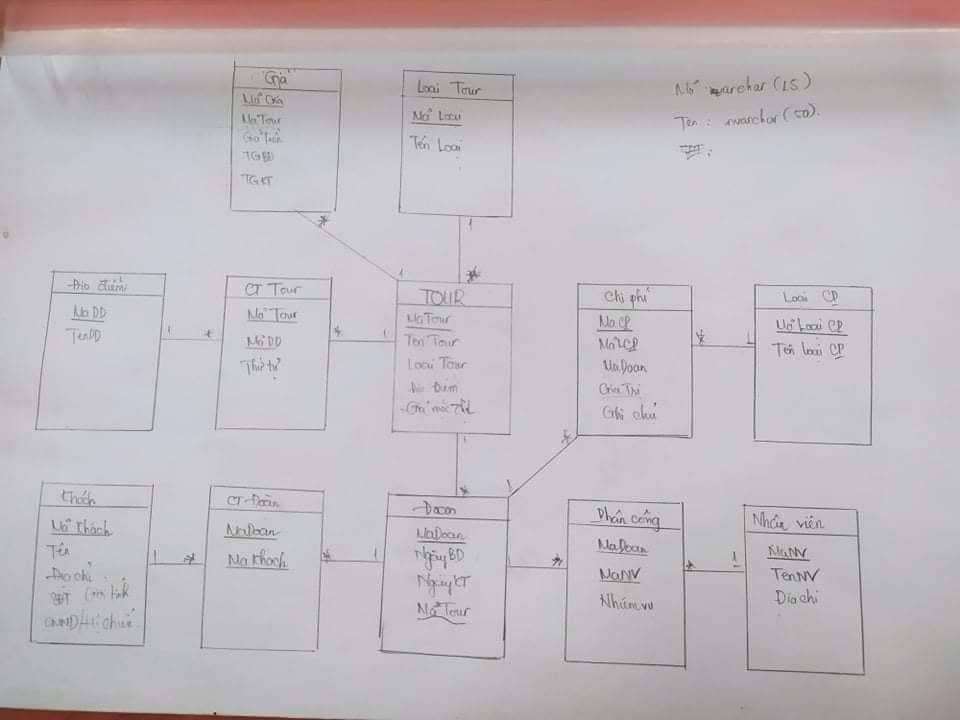 Giá
Mã Giá
Ma Tour
Giá Tiền
TGBD
TGKT
Loai Tour
Mã Loai
Tên Loai
Mã varchar (15)
Ten : nvarchar (50).
Địa điểm
Ma DD
TenDD
1
*
CT Tour
Mã Tour
Mã DD
Thứ tự
*
1
TOUR
Ma Tour
Ten Tour
Loai Tour
Địa Điểm
Chi phí
Ma CP
MaDoan
Gia Tri
Ghi chú
*
1
Loai CP
Mã Loai CP
Tên loai CP
*
1
1
*
1
*
*
1
Khách
Mã Khách
Tên
Địa chỉ
SĐT Giới tính
CMND/Hộ chiếu
1
*
CT Đoàn
Ma Doan
Ma Khách
*
1
Doan
MaDoan
Ngày BD
Ngày KT
Mã Tour
1
*
Phân công
Ma Doan
MaNV
Nhiệm vụ
*
1
Nhân viên
MaNV
TenNV
Dia chi